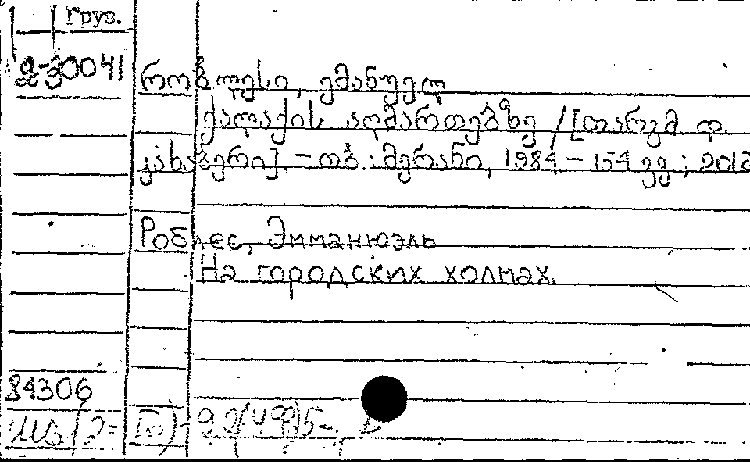 Груз.
2-30041
რობლესი, ემანუელ
ქალაქის აღმართებზე /[თარგმ. დ.
კახაბერი]. - თბ.: მერანი, 1984 - 154 გვ.; 20
Роблес, Эммануэль
На городских холмах.
84306